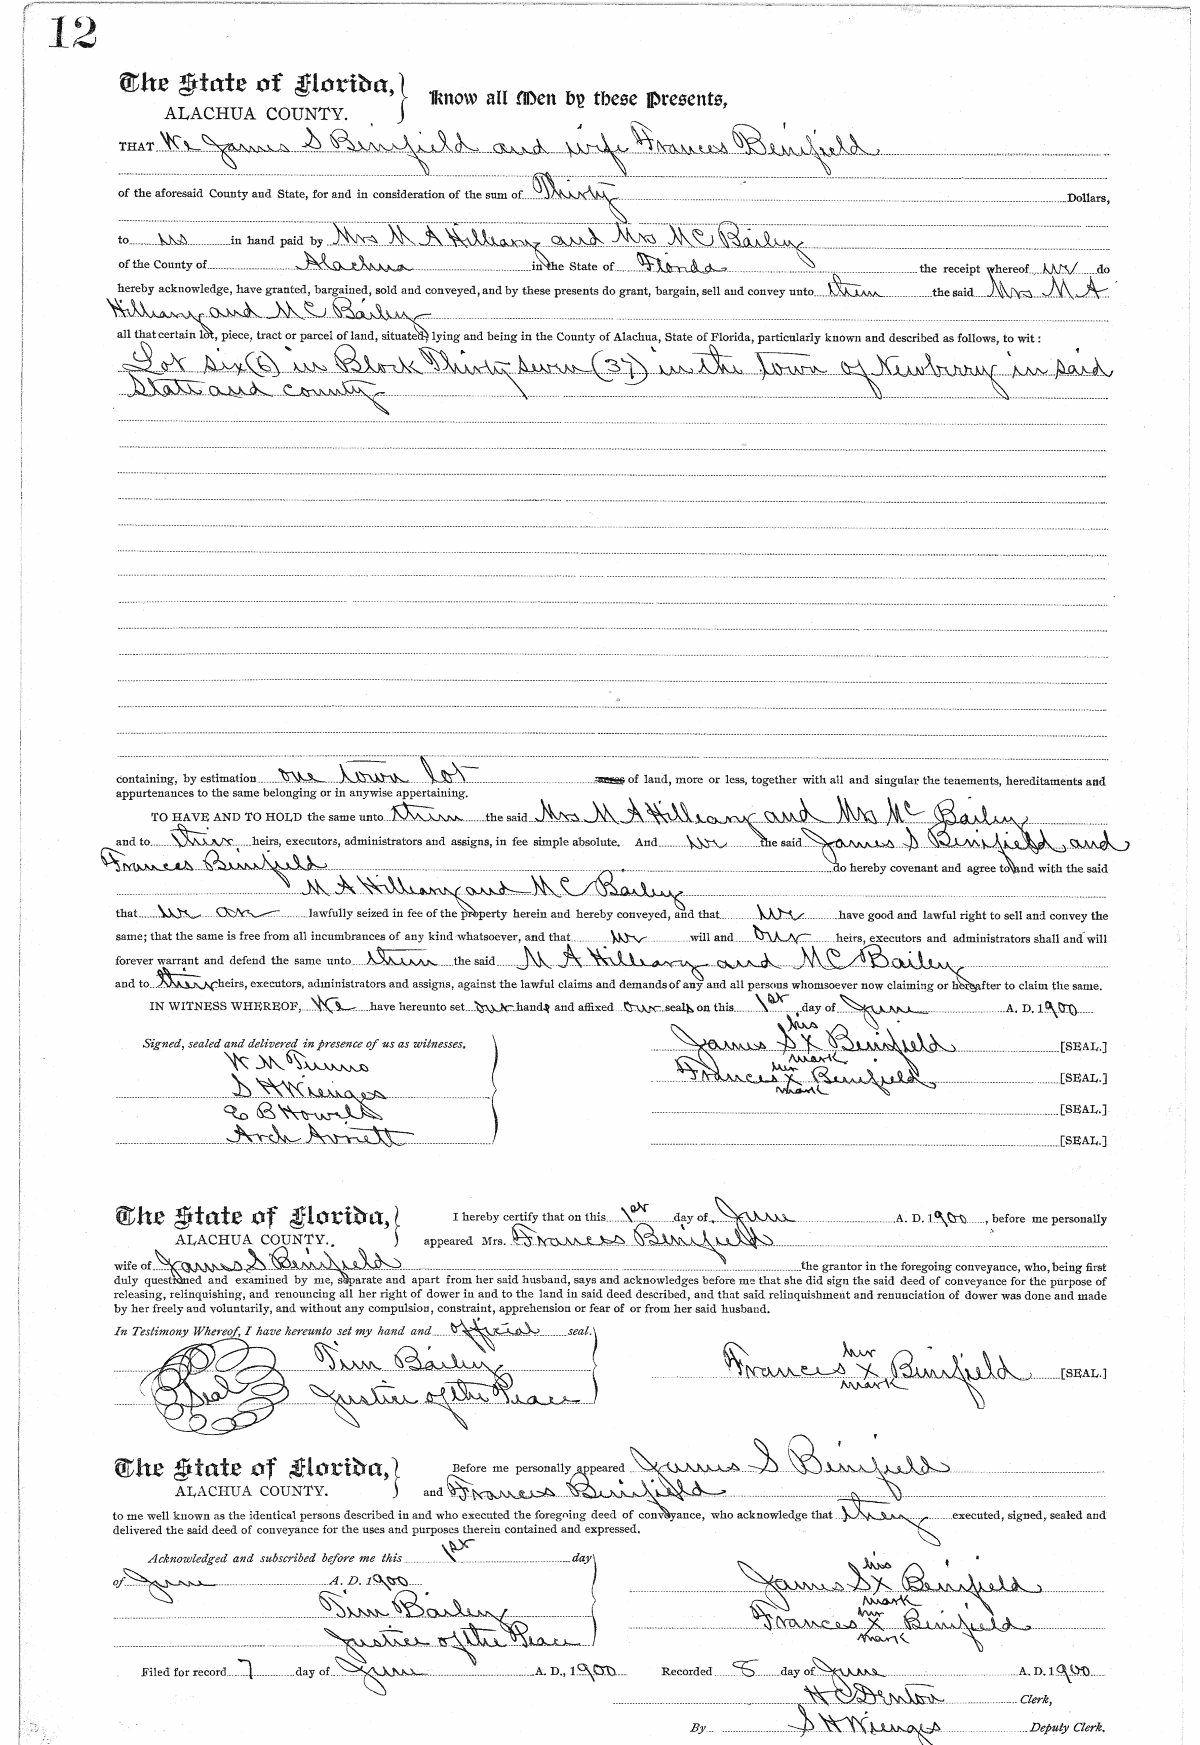 12
The State of Florida,
ALACHUA COUNTY.
Know all Men by these Presents,
THAT We James S Benifield and wife Frances Benifield
of the aforesaid County and State, for and in consideration of the sum of Thirty Dollars,
to us in hand paid by Mrs M A Hilleary and Mrs M C Bailey
of the County of Alachua in the State of Florida the receipt whereof we do
hereby acknowledge, have granted, bargained, sold and conveyed, and by these presents do grant, bargain, sell and convey unto them the said Mrs M A
Hilleary and M C Bailey
all that certain lot, piece, tract or parcel of land, situated, lying and being in the County of Alachua, State of Florida, particularly known and described as follows, to wit:
Lot six (6) in Block Thirty seven (37) in the town of Newberry in said
State and county
containing, by estimation one town lot acres of land, more or less, together with all and singular the tenements, hereditaments and
appurtenances to the same belonging or in anywise appertaining.
TO HAVE AND TO HOLD the same unto them the said Mrs M A Hilleary and Mrs M C Bailey
and to their heirs, executors, administrators and assigns, in fee simple absolute. And we the said James S Benifield and
Frances Benifield do hereby covenant and agree to and with the said
M A Hilleary and M C Bailey
that we are lawfully seized in fee of the property herein and hereby conveyed, and that we have good and lawful right to sell and convey the
same; that the same is free from all incumbrances of any kind whatsoever, and that we will and our heirs, executors and administrators shall and will
forever warrant and defend the same unto them the said M A Hilleary and M C Bailey
and to their heirs, executors, administrators and assigns, against the lawful claims and demands of any and all persons whomsoever now claiming or hereafter to claim the same.
IN WITNESS WHEREOF, We have hereunto set our hands and affixed our seals on this 1st day of June A. D. 1900
Signed, sealed and delivered in presence of us as witnesses.
his
James S X Benifield [SEAL.]
mark
W M Tunno
her
Frances X Benifield [SEAL.]
mark
S H Wienges
E B Howell [SEAL.]
Arch Avriett [SEAL.]
The State of Florida,
ALACHUA COUNTY.
I hereby certify that on this 1st day of June A. D. 1900, before me personally
appeared Mrs. Frances Benifield
wife of James S Benifield the grantor in the foregoing conveyance, who, being first
duly questioned and examined by me, separate and apart from her said husband, says and acknowledges before me that she did sign the said deed of conveyance for the purpose of
releasing, relinquishing, and renouncing all her right of dower in and to the land in said deed described, and that said relinquishment and renunciation of dower was done and made
by her freely and voluntarily, and without any compulsion, constraint, apprehension or fear of or from her said husband.
In Testimony Whereof, I have hereunto set my hand and official seal.
Tim Bailey
Seal
Justice of the Peace
her
Frances X Benifield [SEAL.]
mark
The State of Florida,
ALACHUA COUNTY.
Before me personally appeared James S Benifield
and Frances Benifield
to me well known as the identical persons described in and who executed the foregoing deed of conveyance, who acknowledge that they executed, signed, sealed and
delivered the said deed of conveyance for the uses and purposes therein contained and expressed.
Acknowledged and subscribed before me this 1st day
of June A. D. 1900
Tim Bailey
Justice of the Peace
his
James S X Benifield
mark
her
Frances X Benifield
mark
Filed for record 7 day of June A. D., 1900 Recorded 8 day of June A. D. 1900
H C Denton Clerk,
By S H Wienges Deputy Clerk.